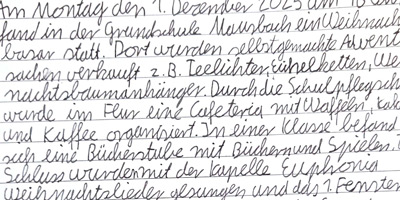 Am Montag den 1. Dezember 2025 um 16
fand in der Grundschule Mausbach ein Weihnach
basar statt. Dort wurden selbstgemachte Advent
sachen verkauft z.B. Teelichter, Eichelketten, We
nachtsbaumanhänger. Durch die Schulpflegsch
wurde im Flur eine Cafeteria mit Waffeln, kak
und Kaffee organisiert. In einer Klasse befand
sich eine Bücherstube mit Büchern und Spielen.
Schluss wurden mit der Kapelle Euphonia
Weihnachtslieder gesungen und das 1. Fenster